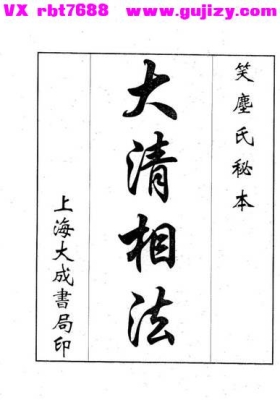 VX rbt7688 www.gujizy.com
笑塵氏秘本
大清相法
上海大成書局印